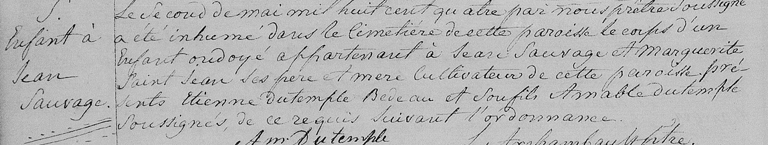 S.
Enfant à
Jean
Sauvage.
Le second de mai mil huit cent quatre par nous prêtre soussigné
a été inhumé dans le cimetière de cette paroisse le corps d'un
Enfant ondoyé appartenant à Jean Sauvage et Marguerite
Saint Jean ses père et mere Cultivateur de cette paroisse pré-
sents Etienne Dutemple Bedeau et son fils Amable dutemple
soussignés, de ce requis suivant l'ordonnance.
Am Dutemple
L. Archambault Ptre.